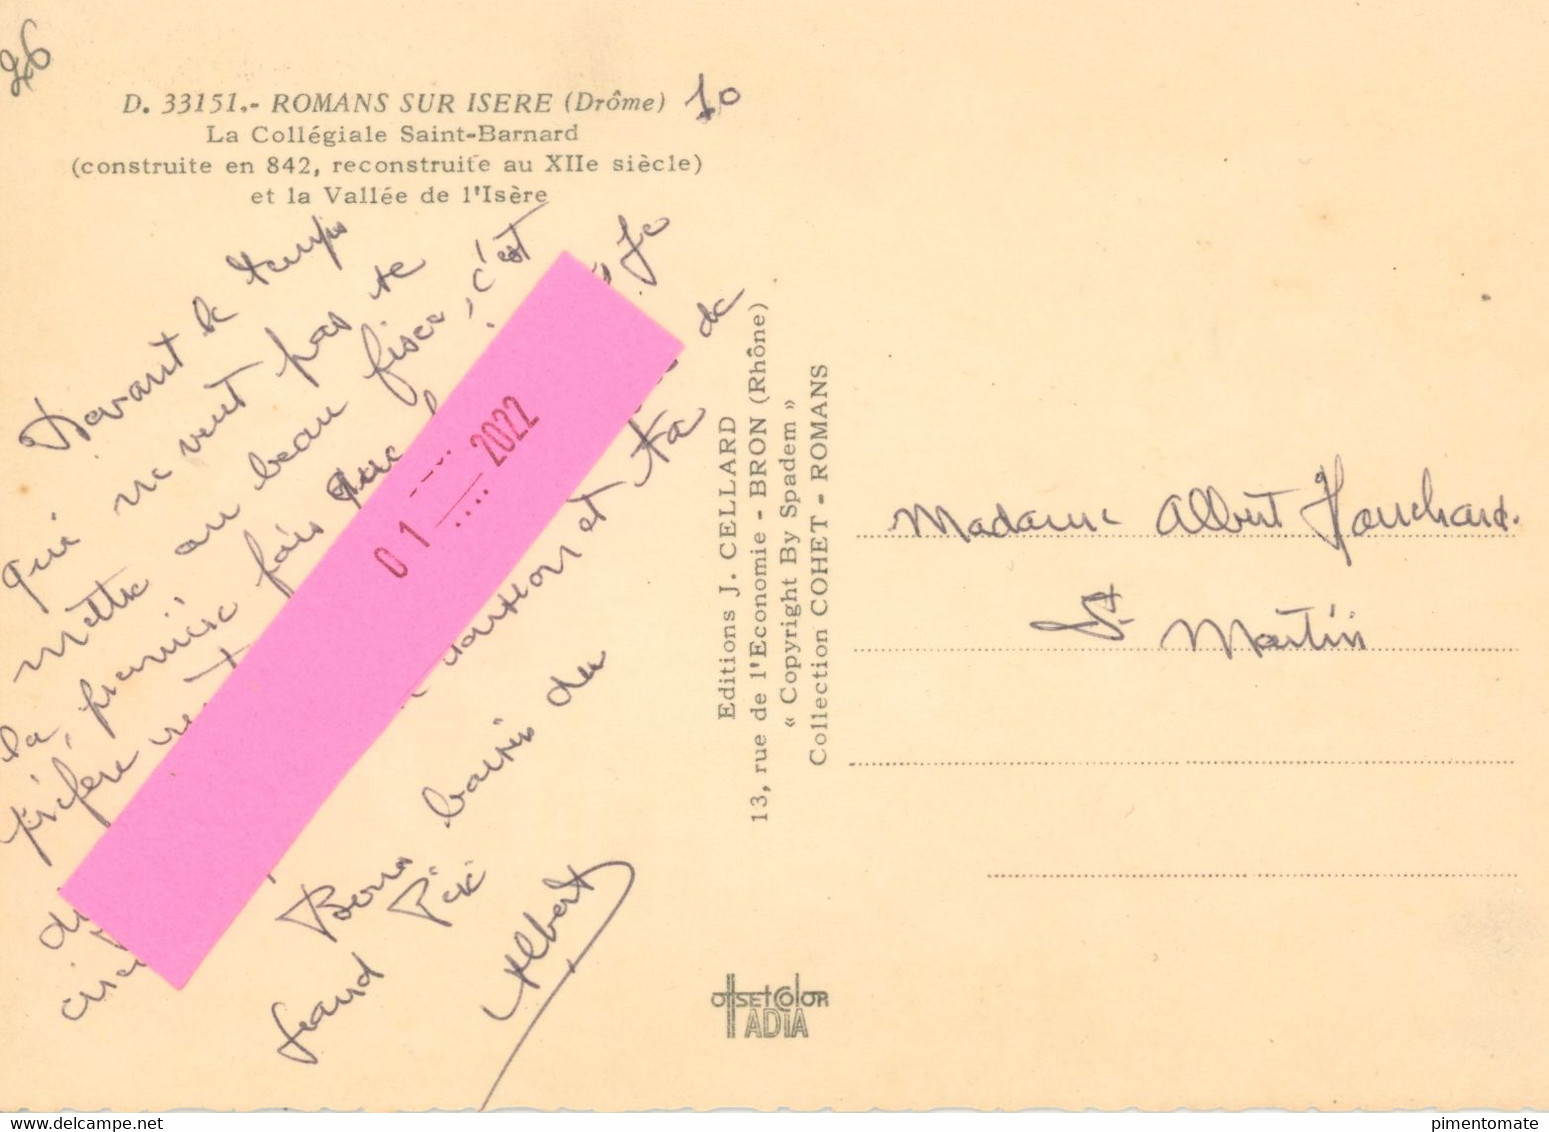 26
D. 33151.- ROMANS SUR ISERE (Drôme) 10
La Collégiale Saint-Barnard
(construite en 842, reconstruite au XIIe siècle)
et la Vallée de l'Isère
Devant le temps
qui ne veut pas te
mettre au beau fixe, c'est
la première fois que Je
préfère de
et ta
Bons baisers du
grand
Albert
01 2022
Editions J. CELLARD
13, rue de l'Economie - BRON (Rhône)
« Copyright By Spadem »
Collection COHET - ROMANS
OffsetColor
IADIA
Madame Albert Fouchard.
St Martin
www.delcampe.net
pimentomate